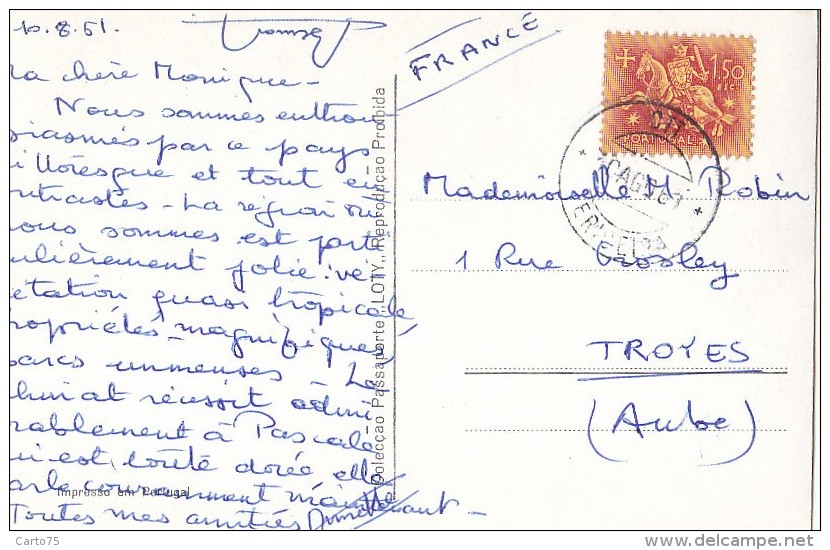 10.8.61.
FRANCE
1$50
PORTUGAL
CTT
10 AGO 61
ERICEIRA
la chère Monique -
Nous sommes enthou
siasmés par ce pays
ittoresque et tout en
ntrastes - La région où
nous sommes est parti
ulièrement jolie : vé-
étation quasi tropicale
ropriétés magnifiques,
parcs immenses. Le
limat réussit admi
rablement à Pascale
ui est toute dorée elle
arle couramment mainte
nant -
Toutes mes amitiés
Colecção Passaporte "LOTY", Reprodução Proibida
Impresso em Portugal
Mademoiselle M Robin
1 Rue Brosley
TROYES
(Aube)
Carto75
delcampe.net